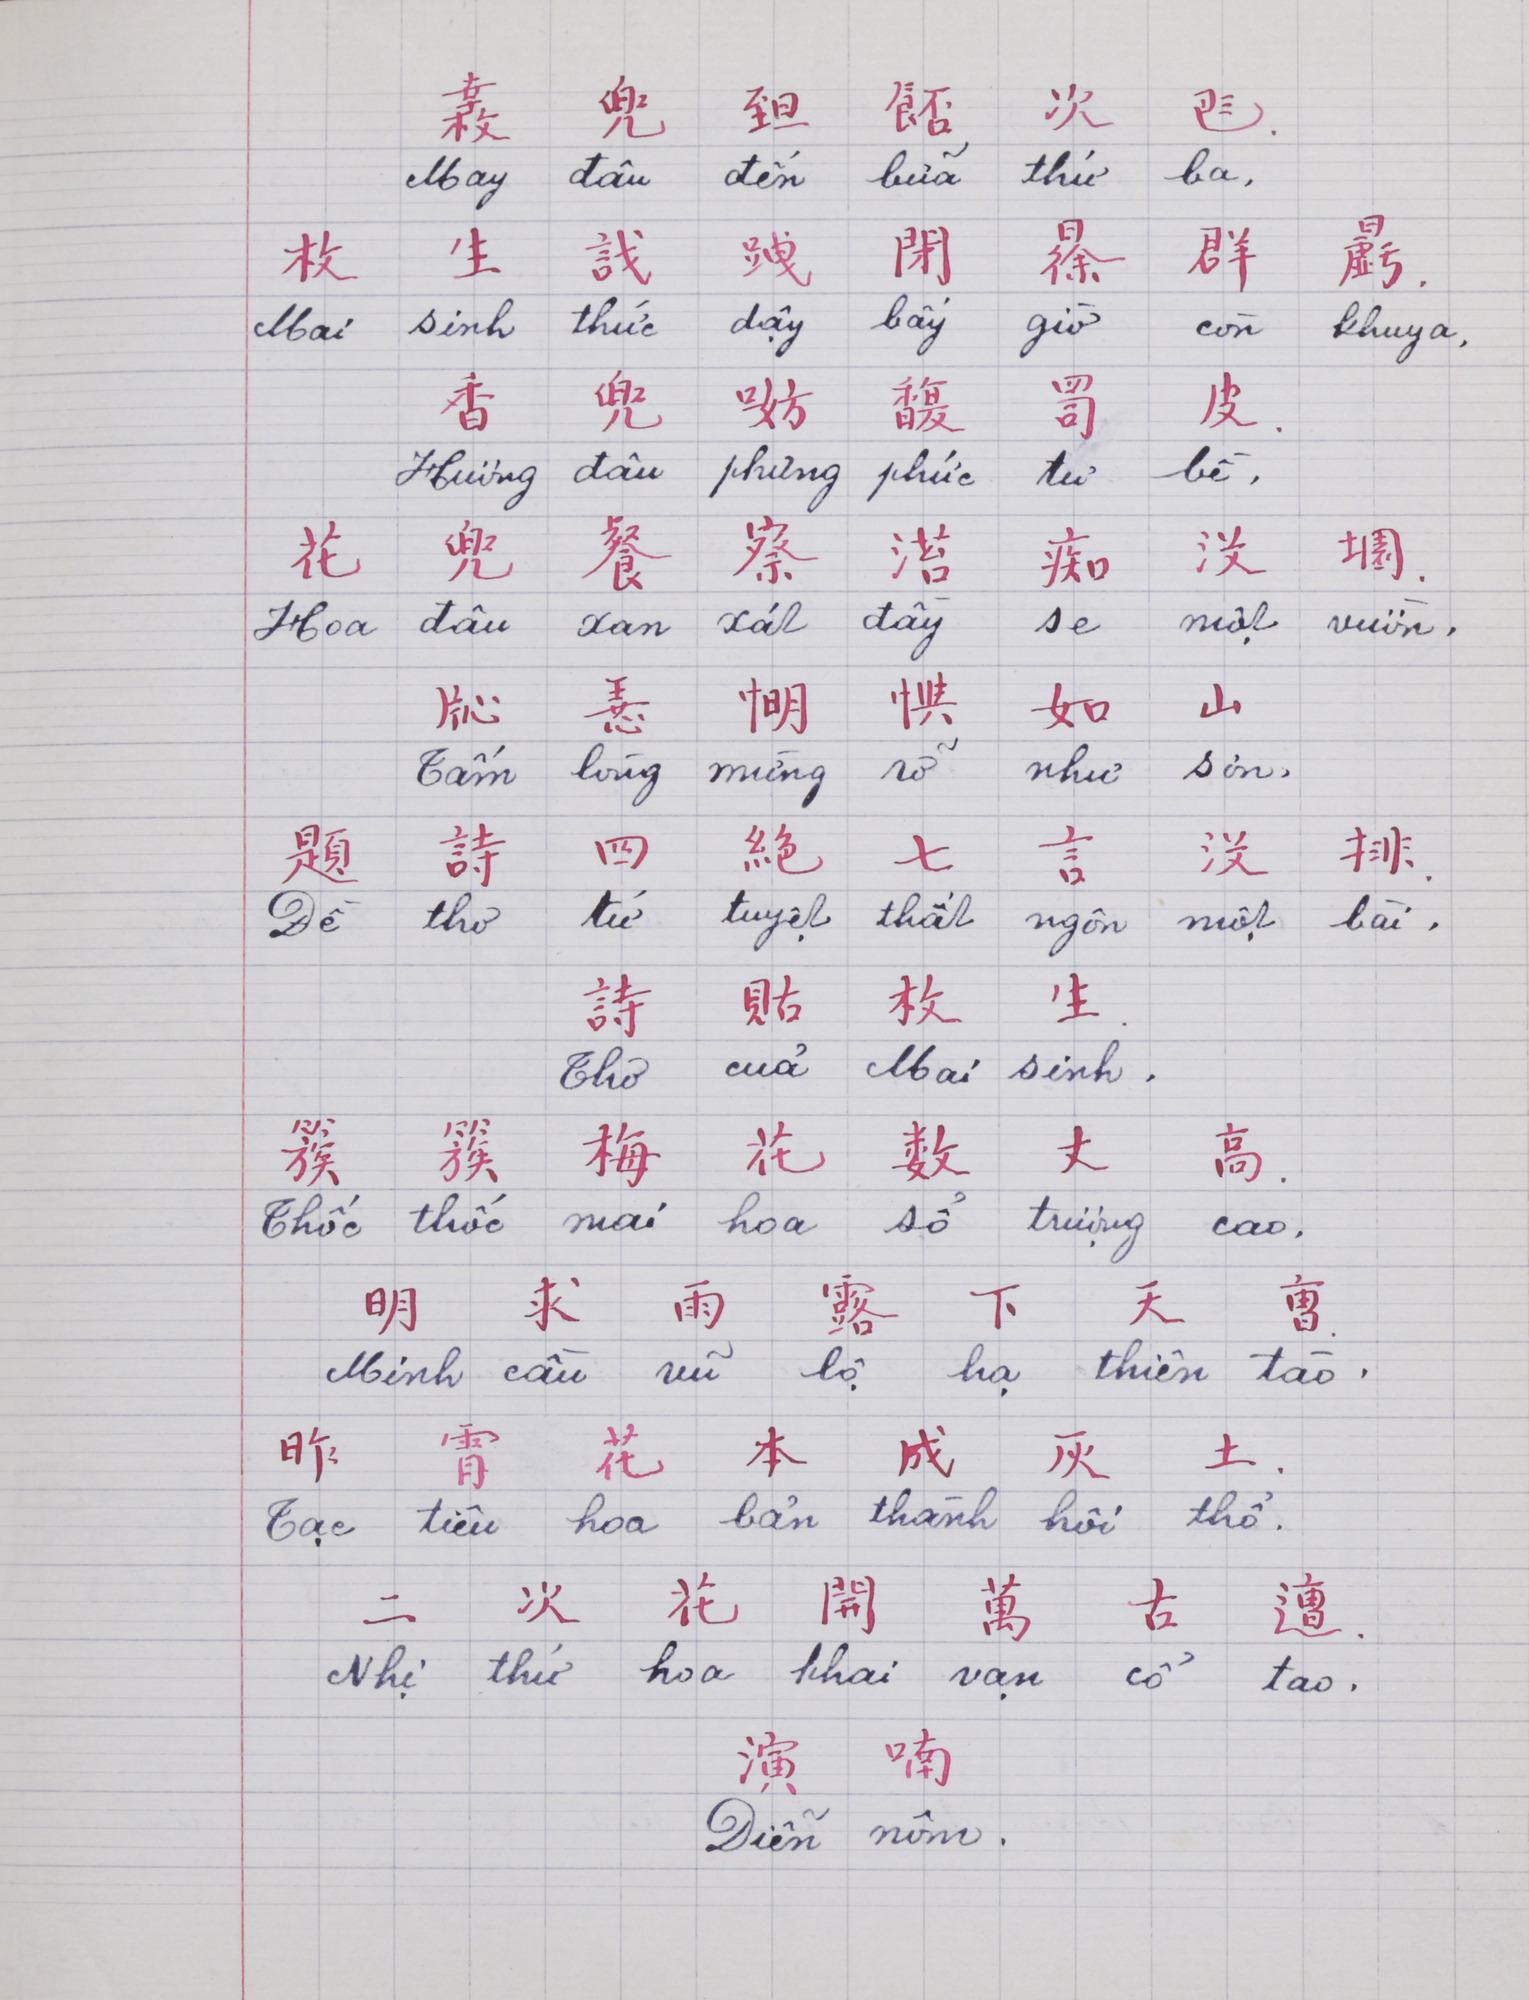 兜 𦤾 次 𠀧.
May đâu đến bữa thứ ba,
枚 生 𧻭 閉 群
Mai sinh thức dậy bấy giờ còn khuya,
香 兜 馥 皮.
Hương đâu phưng phức tư bề,
花 兜 餐 察 痴 没
Hoa đâu xan xát đầy se một vườn,
惧 如 山
Tấm lòng mừng rỡ như sơn,
題 詩 四 絶 七 言 没 排.
Đề thơ tứ tuyệt thất ngôn một bài,
詩 貼 枚 生.
Thơ của Mai sinh.
簇 簇 梅 花 数 丈 高.
Thốc thốc mai hoa sổ trượng cao,
明 求 雨 露 下 天 曹.
Minh cầu vũ lộ hạ thiên tào,
昨 霄 花 本 成 灰 土.
Tạc tiêu hoa bản thành hôi thổ.
二 次 花 開 萬 古 遭.
Nhị thứ hoa khai vạn cổ tao.
演 喃
Diễn nôm.